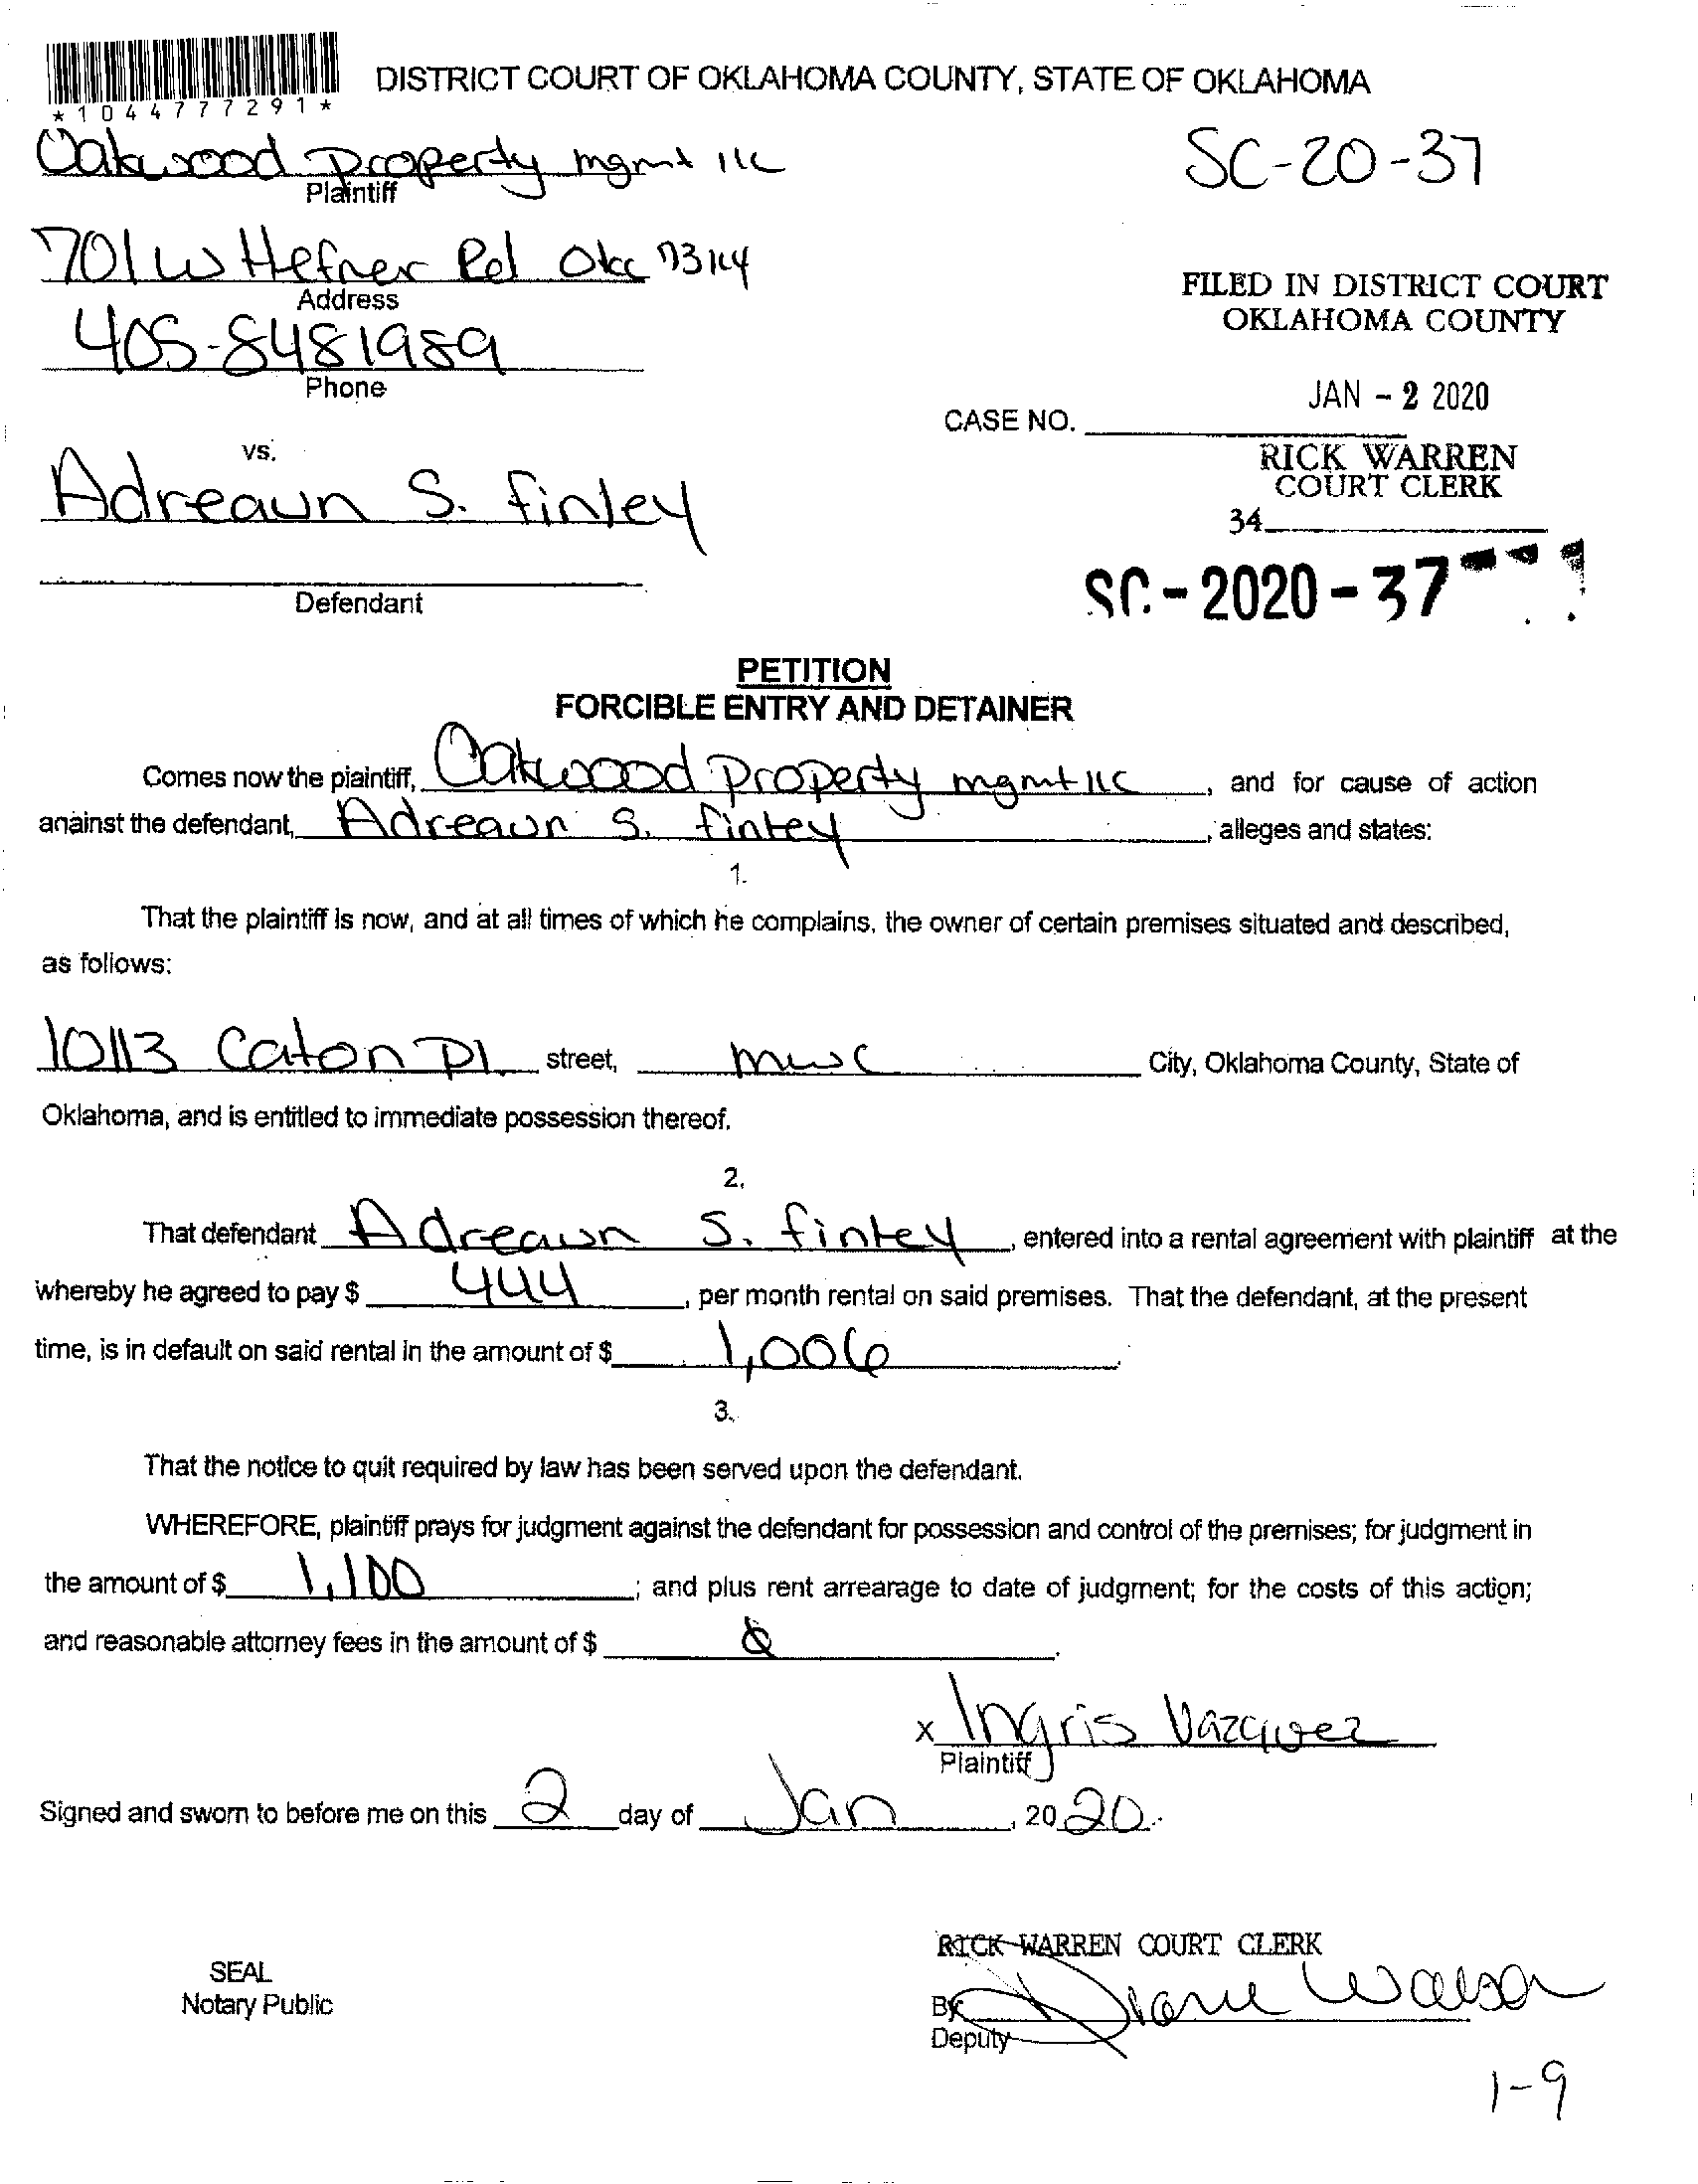 *1044777291*
DISTRICT COURT OF OKLAHOMA COUNTY, STATE OF OKLAHOMA
Oakwood Property mgmt llc
Plaintiff
SC-20-37
701 W Hefner Rd Okc 73114
Address
FILED IN DISTRICT COURT
OKLAHOMA COUNTY
405-8481989
Phone
JAN - 2 2020
CASE NO.
RICK WARREN
COURT CLERK
vs.
Adreaun S. finley
34
Defendant
SC-2020-37
PETITION
FORCIBLE ENTRY AND DETAINER
Comes now the plaintiff, Oakwood Property mgmt llc, and for cause of action
against the defendant, Adreaun S. finley, alleges and states:
1.
That the plaintiff is now, and at all times of which he complains, the owner of certain premises situated and described,
as follows:
10113 Caton Pl street, mwc City, Oklahoma County, State of
Oklahoma, and is entitled to immediate possession thereof.
2.
That defendant Adreaun S. finley, entered into a rental agreement with plaintiff at the
whereby he agreed to pay $ 444, per month rental on said premises. That the defendant, at the present
time, is in default on said rental in the amount of $ 1,006.
3.
That the notice to quit required by law has been served upon the defendant.
WHEREFORE, plaintiff prays for judgment against the defendant for possession and control of the premises; for judgment in
the amount of $ 1,100; and plus rent arrearage to date of judgment; for the costs of this action;
and reasonable attorney fees in the amount of $
x Ingris Vazquez
Plaintiff
Signed and sworn to before me on this 2 day of Jan, 2020.
RICK WARREN COURT CLERK
SEAL
Notary Public
By Diane
Deputy
1-9